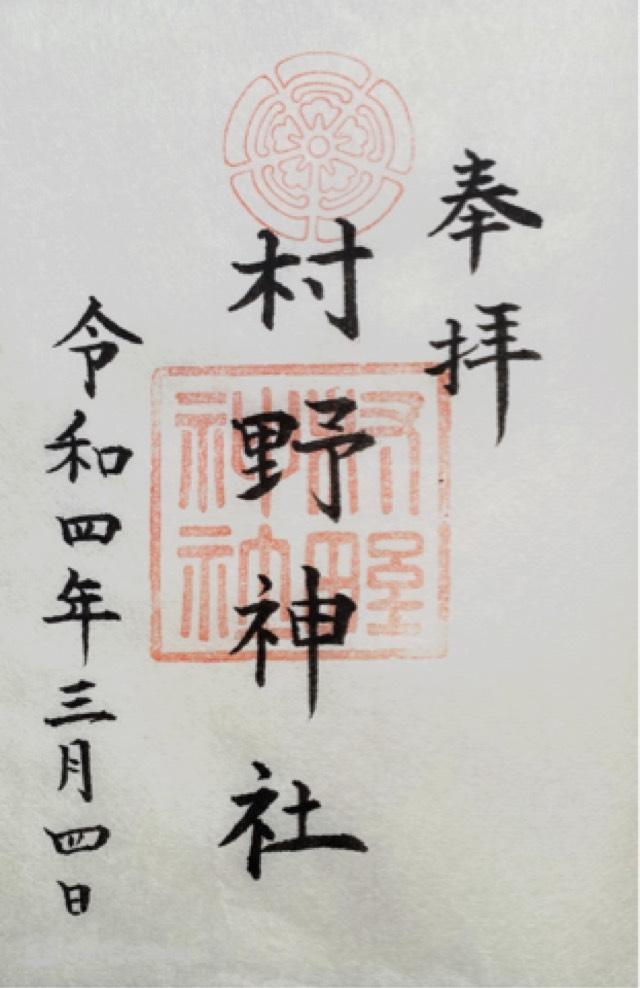 奉拝
村野神社
村野神社
令和四年三月四日